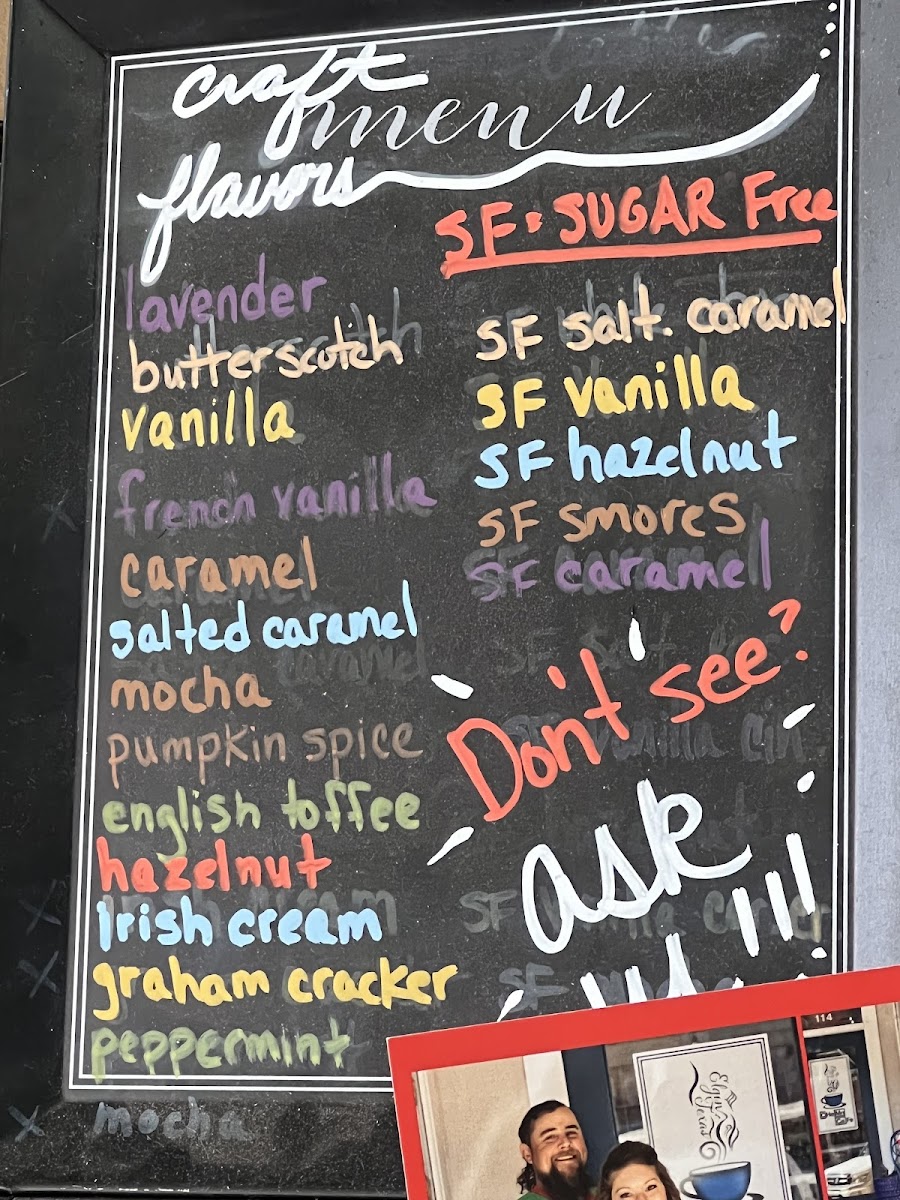 craft
menu
flavors
SF · SUGAR Free
lavender
butterscotch
vanilla
french vanilla
caramel
salted caramel
mocha
pumpkin spice
english toffee
hazelnut
Irish cream
graham cracker
peppermint
mocha
SF salt. caramel
SF vanilla
SF hazelnut
SF smores
SF caramel
Don't see?
ask
!!!
114